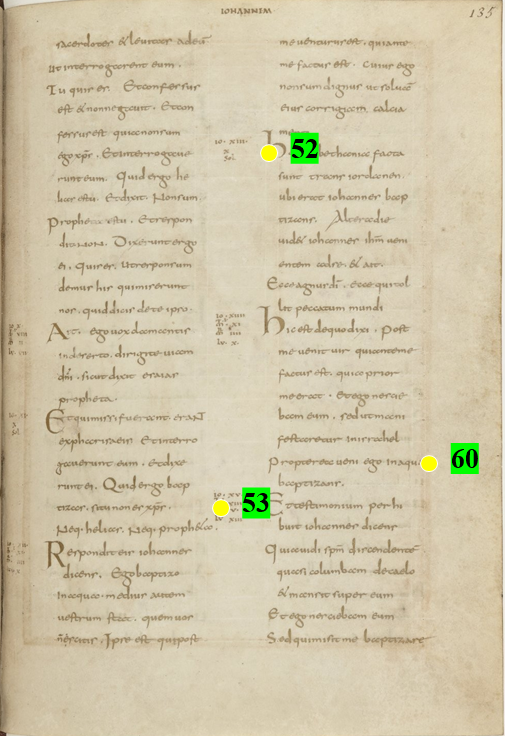 IOHANNEM
135
sacerdotes & leuitas ad eū
ut interrogarent eum.
Tu quis es. Et confessus
est & non negauit. Et con
fessus est quia non sum
ego xp̄s. Et interrogaue
runt eum. Quid ergo he
lias es tu. Et dixit. Non sum.
Propheta es tu. Et respon
dit NON. Dixerunt ergo
ei. Quis es. Ut responsum
demus his qui miserunt
nos. quid dicis de te ipso.
Ait. ego uox clamantis
in deserto. dirigite uiam
dn̄i. sicut dixit esaias
propheta.
Et qui missi fuerant. erant
ex pharisaeis Et interro
gauerunt eum. Et dixe
runt ei. Quid ergo bap
tizas. si tu non es xp̄s.
Neq. helias. Neq. propheta.
Respondit eis iohannes
dicens. Ego baptizo
in aqua. medius autem
uestrum stat. quem uos
nescitis. Ipse est qui post
me uenturus est. qui ante
me factus est. cuius ego
non sum dignus ut soluā
eius corrigiam calcia
menti
io. XIII.
52
bethania facta
sunt trans iordanen.
ubi erat iohannes bap
tizans. Altera die
uidet iohannes ihm̄ ueni
entem ad se. & ait.
Ecce agnus dī. ecce qui tol
lit peccatum mundi
Hic est de quo dixi. Post
me uenit uir qui ante me
factus est. quia prior
me erat. Et ego nescie
bam eum. sed ut mani
festaretur in israhel
Propterea ueni ego in aqua
60
baptizans.
53
Et testimonium perhi
buit iohannes dicens
Quia uidi spm̄ discendentē
quasi columbam de caelo
& mansit super eum
Et ego nesciebam eum
Sed qui misit me baptizare